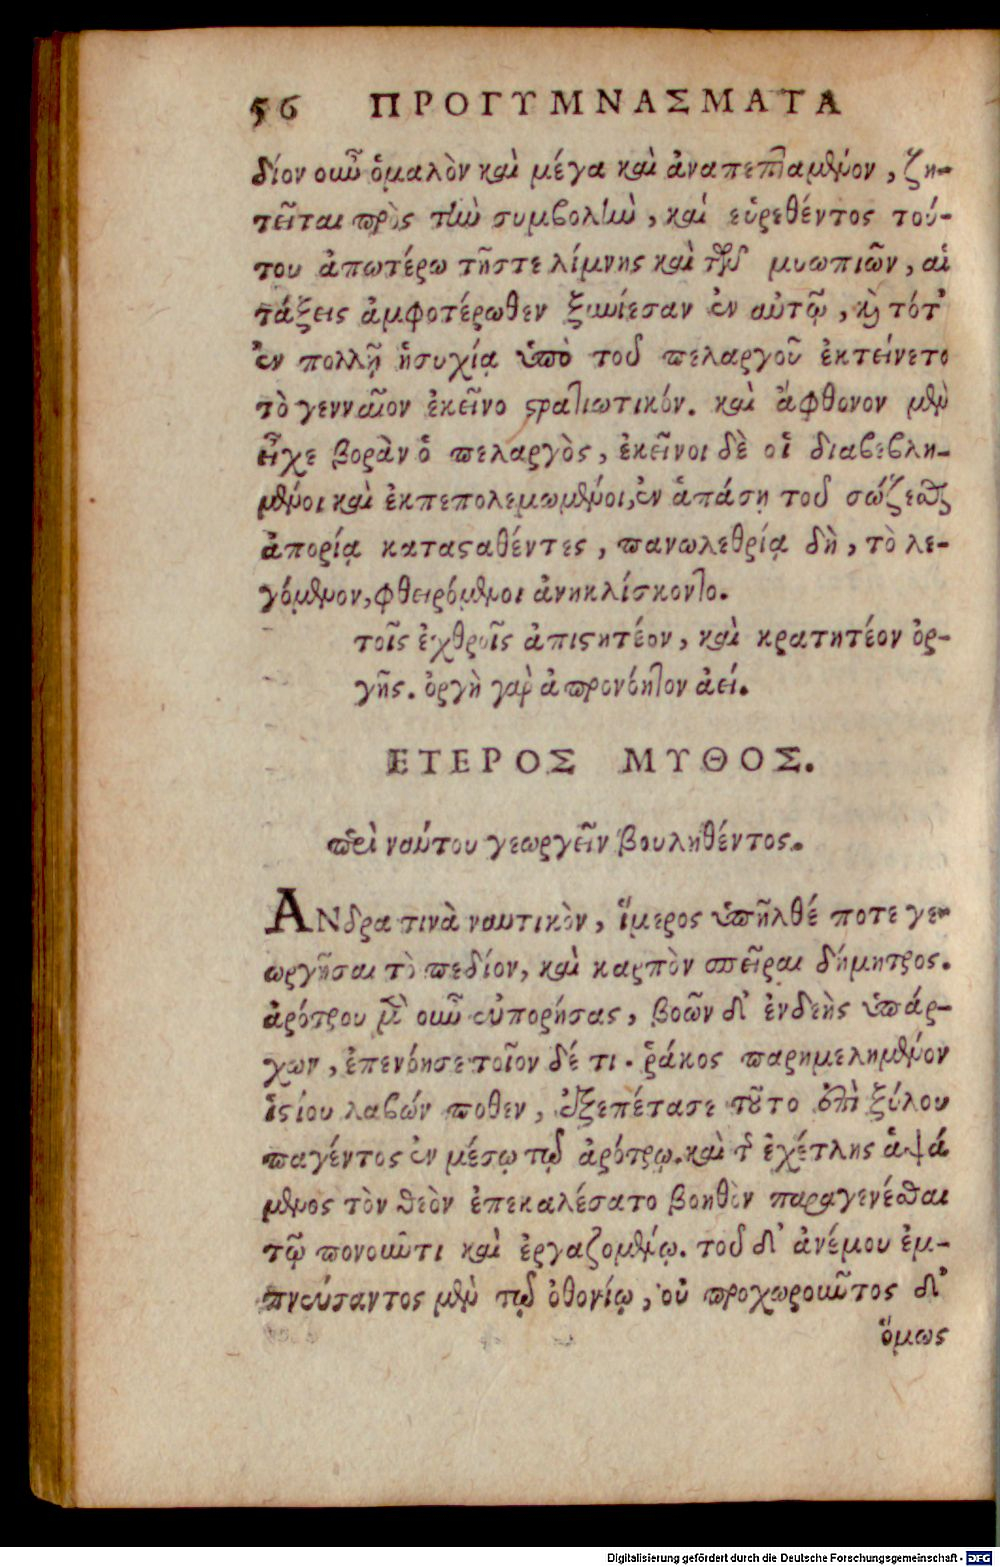 56 ΠΡΟΓΥΜΝΑΣΜΑΤΑ
δίον οὖν ὁμαλὸν καὶ μέγα καὶ ἀναπεπταμένον, ζη-
τεῖται πρὸς τὴν συμβολὴν, καὶ εὑρεθέντος τού-
του ἀπωτέρω τῆστε λίμνης καὶ τῶν μυωπιῶν, αἱ
τάξεις ἀμφοτέρωθεν ξυνίεσαν ἐν αὐτῷ, καὶ τότ'
ἐν πολλῇ ἡσυχίᾳ ὑπὸ τοῦ πελαργοῦ ἐκτείνετο
τὸ γενναῖον ἐκεῖνο στρατιωτικόν. καὶ ἄφθονον μὲν
εἶχε βορὰν ὁ πελαργὸς, ἐκεῖνοι δὲ οἱ διαβεβλη-
μένοι καὶ ἐκπεπολεμωμένοι, ἐν ἁπάσῃ τοῦ σώζεσθαι
ἀπορίᾳ κατασταθέντες, πανωλεθρίᾳ δὴ, τὸ λε-
γόμενον, φθειρόμενοι ἀνηκλίσκοντο.
τοῖς ἐχθροῖς ἀπιστητέον, καὶ κρατητέον ὀρ-
γῆς. ὀργὴ γὰρ ἀπρονόητον ἀεί.
ΕΤΕΡΟΣ ΜΥΘΟΣ.
περὶ ναύτου γεωργεῖν βουληθέντος.
ΑΝδρα τινὰ ναυτικὸν, ἵμερος ὑπῆλθέ ποτε γε-
ωργῆσαι τὸ πεδίον, καὶ καρπὸν σπεῖραι δήμητρος.
ἀρότρου μὲν οὖν εὐπορήσας, βοῶν δ' ἐνδεὴς ὑπάρ-
χων, ἐπενόησε τοῖον δέ τι. ῥάκος παρημελημένον
ἱστίου λαβών ποθεν, ἐξεπέτασε τοῦτο ἐπὶ ξύλου
παγέντος ἐν μέσῳ τῷ ἀρότρῳ. καὶ τῆς ἐχέτλης ἁψά
μενος τὸν θεὸν ἐπεκαλέσατο βοηθὸν παραγενέσθαι
τῷ πονοῦντι καὶ ἐργαζομένῳ. τοῦ δ' ἀνέμου ἐμ-
πνεύσαντος μὲν τῷ ὀθονίῳ, οὐ προχωροῦντος δ'
ὅμως
Digitalisierung gefördert durch die Deutsche Forschungsgemeinschaft - DFG